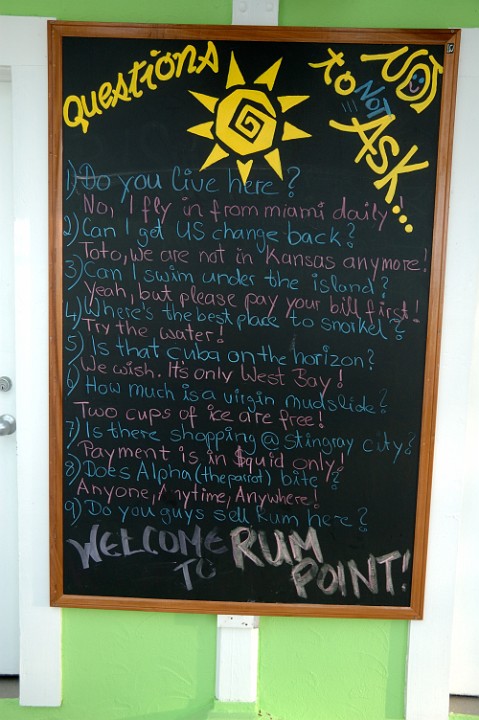 Questions NOT
to NOT
ASK...
1) Do you live here?
No, I fly in from miami daily!
2) Can I get US change back?
Toto, We are not in Kansas anymore!
3) Can I swim under the island?
Yeah, but please pay your bill first!
4) Where's the best place to snorkel?
Try the water!
5) Is that cuba on the horizon?
We wish. It's only West Bay!
6) How much is a virgin mudslide?
Two cups of ice are free!
7) Is there shopping @ stingray city?
Payment is in $quid only!
8) Does Alpha (the parrot) bite?
Anyone, Anytime, Anywhere!
9) Do you guys sell Rum here?
WELCOME RUM
TO POINT!